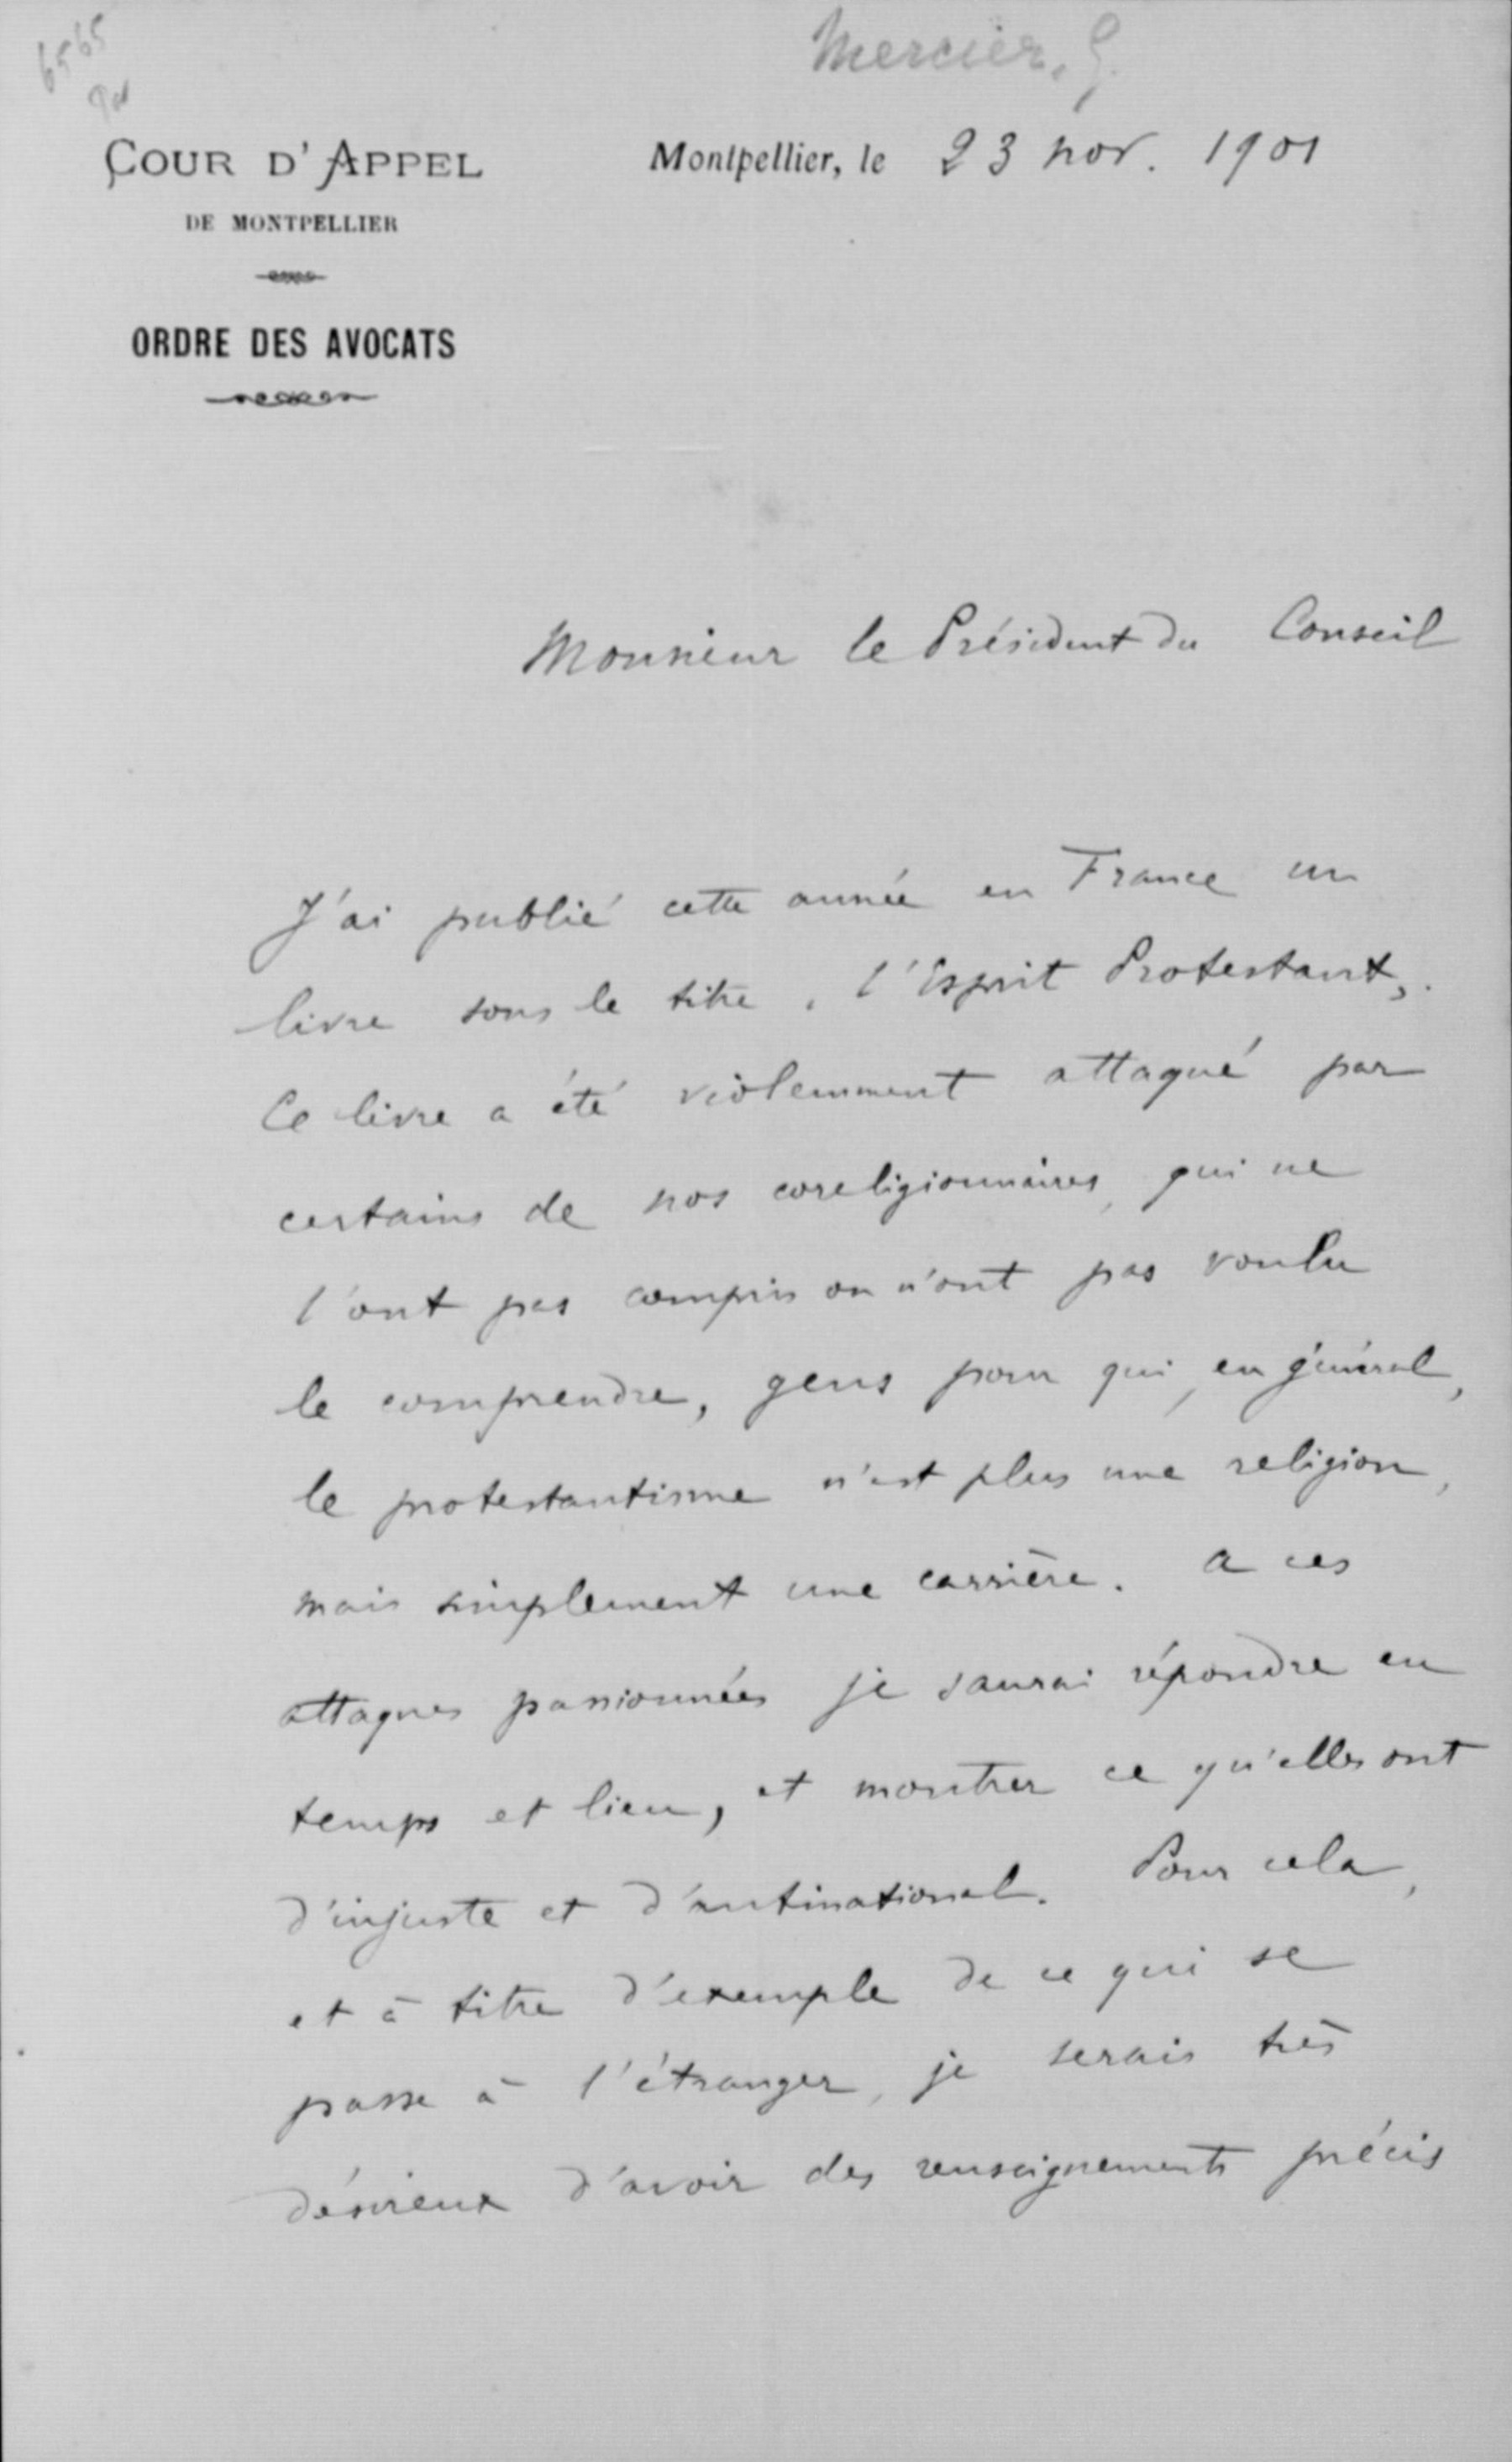 6565
Mercier, G.
COUR D'APPEL
DE MONTPELLIER
ORDRE DES AVOCATS
Montpellier, le 23 nov. 1901
Monsieur le Président du Conseil
J'ai publié cette année en France un
livre sous le titre "l'Esprit Protestant".
Ce livre a été violemment attaqué par
certains de nos coreligionnaires, qui ne
l'ont pas compris ou n'ont pas voulu
le comprendre, gens pour qui, en général,
le protestantisme n'est plus une religion,
mais simplement une carrière. A ces
attaques passionnées je saurai répondre en
temps et lieu, et montrer ce qu'elles ont
d'injuste et d'antinational. Pour cela,
et à titre d'exemple de ce qui se
passe à l'étranger, je serais très
désireux d'avoir des renseignements précis